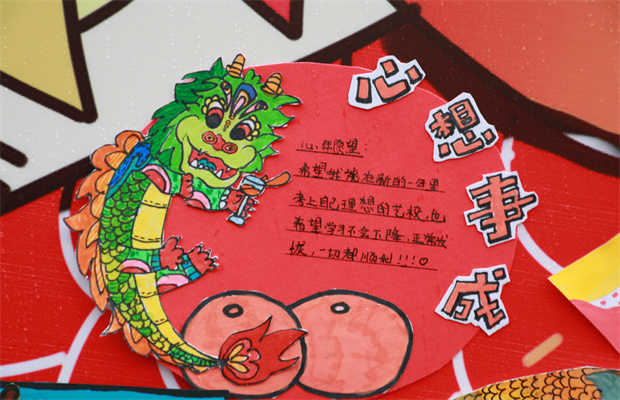 心想事成
心年愿望:
希望我能在新的一年里
考上自己理想的艺校,也
希望学习不会下降,正常发
挥,一切都顺利!!!